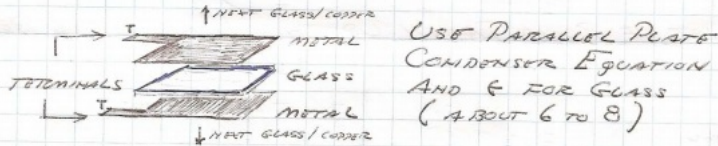 ↑ NEXT GLASS/COPPER
T
METAL
TERMINALS
GLASS
T
METAL
↓ NEXT GLASS/COPPER
USE PARALLEL PLATE
CONDENSER EQUATION
AND ε FOR GLASS
(ABOUT 6 TO 8)